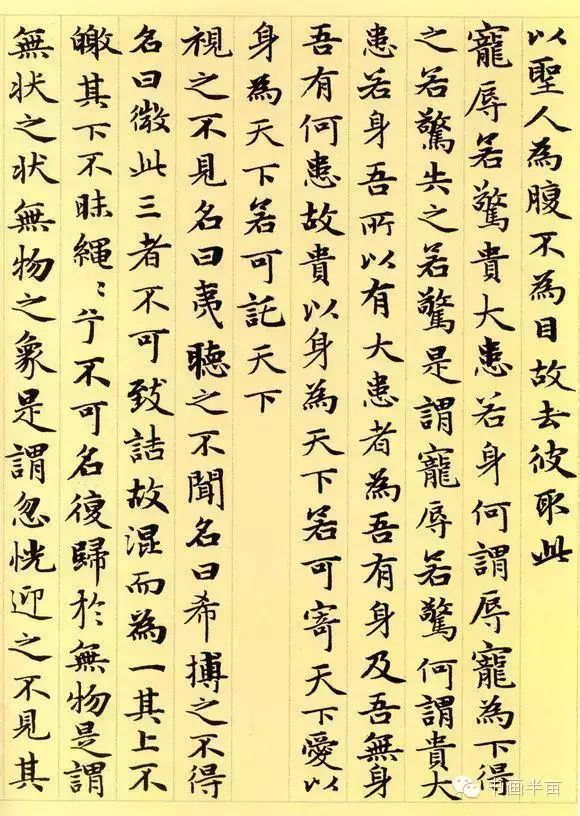 以聖人為腹不為目故去彼取此
寵辱若驚貴大患若身何謂辱寵為下得
之若驚失之若驚是謂寵辱若驚何謂貴大
患若身吾所以有大患者為吾有身及吾無身
吾有何患故貴以身為天下若可寄天下愛以
身為天下若可託天下
視之不見名曰夷聽之不聞名曰希搏之不得
名曰微此三者不可致詰故混而為一其上不
皦其下不昧繩〻兮不可名復歸於無物是謂
無状之状無物之象是謂忽恍迎之不見其
书画半亩